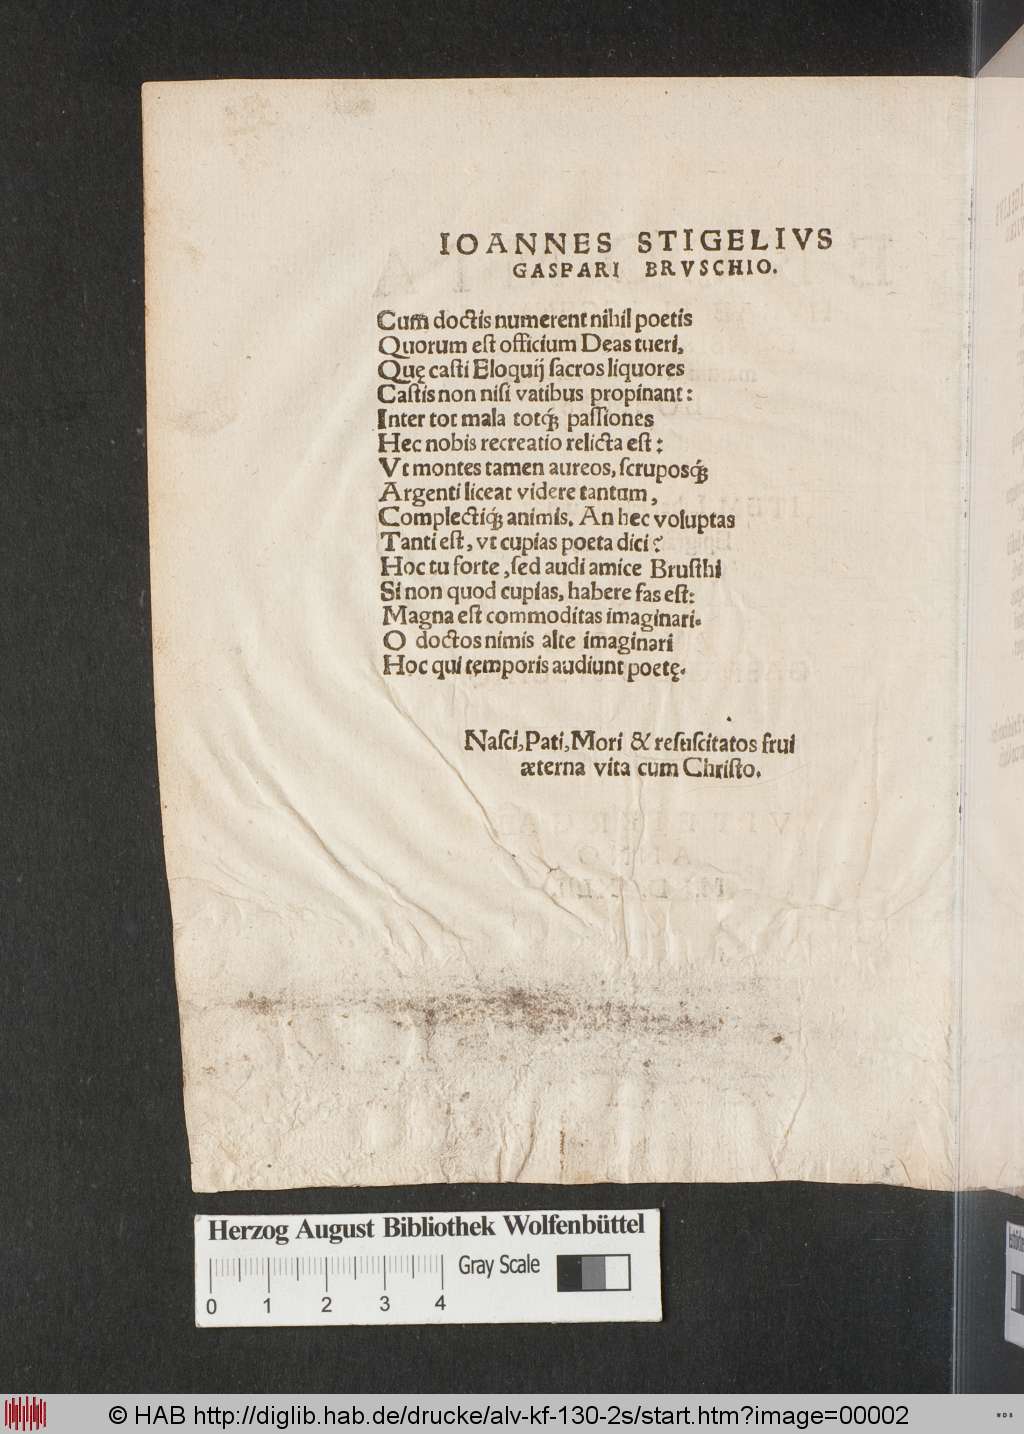 IOANNES STIGELIVS
GASPARI BRVSCHIO.
Cum doctis numerent nihil poetis
Quorum eſt officium Deas tueri,
Quę caſti Eloquij ſacros liquores
Caſtis non niſi vatibus propinant:
Inter tot mala totq́; paſſiones
Hec nobis recreatio relicta eſt:
Vt montes tamen aureos, ſcruposq́;
Argenti liceat videre tantum,
Complectiq́; animis. An hec voluptas
Tanti eſt, vt cupias poeta dici?
Hoc tu forte, ſed audi amice Bruſthi
Si non quod cupias, habere fas eſt:
Magna eſt commoditas imaginari.
O doctos nimis alte imaginari
Hoc qui tęmporis audiunt poetę.
Naſci, Pati, Mori & reſuſcitatos frui
æterna vita cum Chriſto.
Herzog August Bibliothek Wolfenbüttel
Gray Scale
0 1 2 3 4
© HAB http://diglib.hab.de/drucke/alv-kf-130-2s/start.htm?image=00002